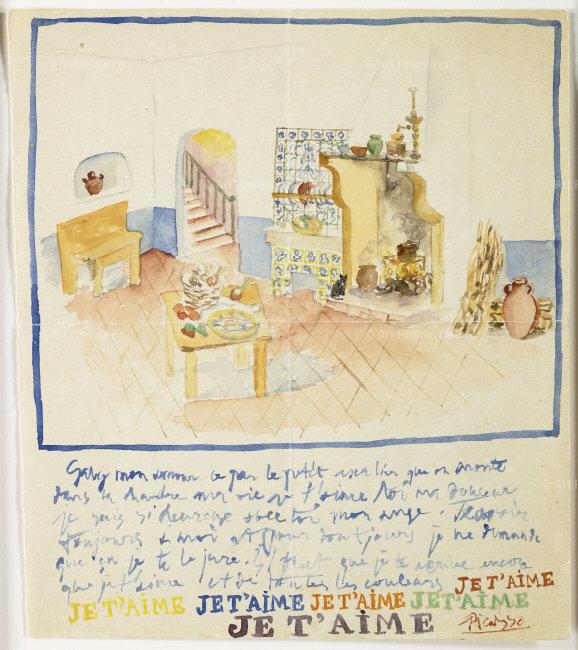 Gaby mon amour ce par le petit escalier que on monte
dans la chambre ma vie je t'aime toi ma douceur
je suis si heureux avec toi mon ange.
toujours a moi et pour toujours je ne demande
que ça je te le jure. Il faut que je te écrive encore
que je t'aime et de toutes les couleurs JE T'AIME
JE T'AIME JE T'AIME JE T'AIME JE T'AIME
JE T'AIME Picasso